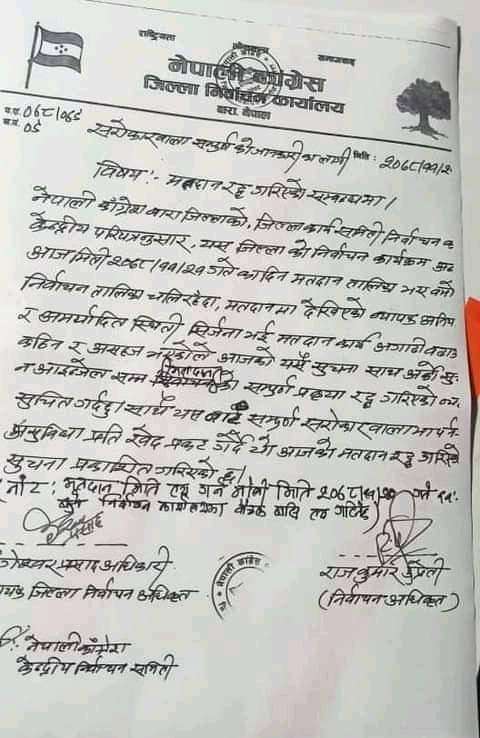 राष्ट्रियता प्रजातन्त्र समाजवाद
नेपाली काँग्रेस
जिल्ला निर्वाचन कार्यालय
बारा, नेपाल
प.सं. ०६८/०६९
च.नं. ०९
सरोकारवाला सम्पूर्णको जानकारीका लागी मिति: २०६८/११/२
विषय:- मतदान रद्द गरिएको सम्बन्धमा।
नेपाली काँग्रेस बारा जिल्लाको, जिल्ला कार्य समिति निर्वाचन क
केन्द्रीय परिपत्रनुसार, यस जिल्ला को निर्वाचन कार्यक्रम
आज मिती २०६८/११/२१ गते का दिन मतदान तालिका
निर्वाचन तालिका चलिरहेदा, मतदानमा देखिएको व्यापक
र अमर्यादित स्थिती सिर्जना भई मतदान कार्य अगाडी बढाउ
कठिन र असहज भएकोले आजको यसै सुचना साथ अर्को सु
न आइन्जेल सम्म सम्पुर्ण प्रकृया रद्द गरिएको व्य
सुचित गर्दछु। साथै यस बाट सम्पूर्ण सरोकारवालामा पर्न
असुविधा प्रति खेद प्रकट गर्दै यो आजको मतदान रद्द गरिएको
सुचना प्रकाशित गरिएको छ।
(नोट: मतदान मिति तय गर्न मिति २०६८/११/ गते
निर्वाचन कार्यालयका बैठक बसि तय गरिनेछ)
प्रसाद अधिकारी राजकुमार उप्रेती
जिल्ला निर्वाचन अधिकृत (निर्वाचन अधिकृत)
नेपाली काँग्रेस
केन्द्रीय निर्वाचन समिति